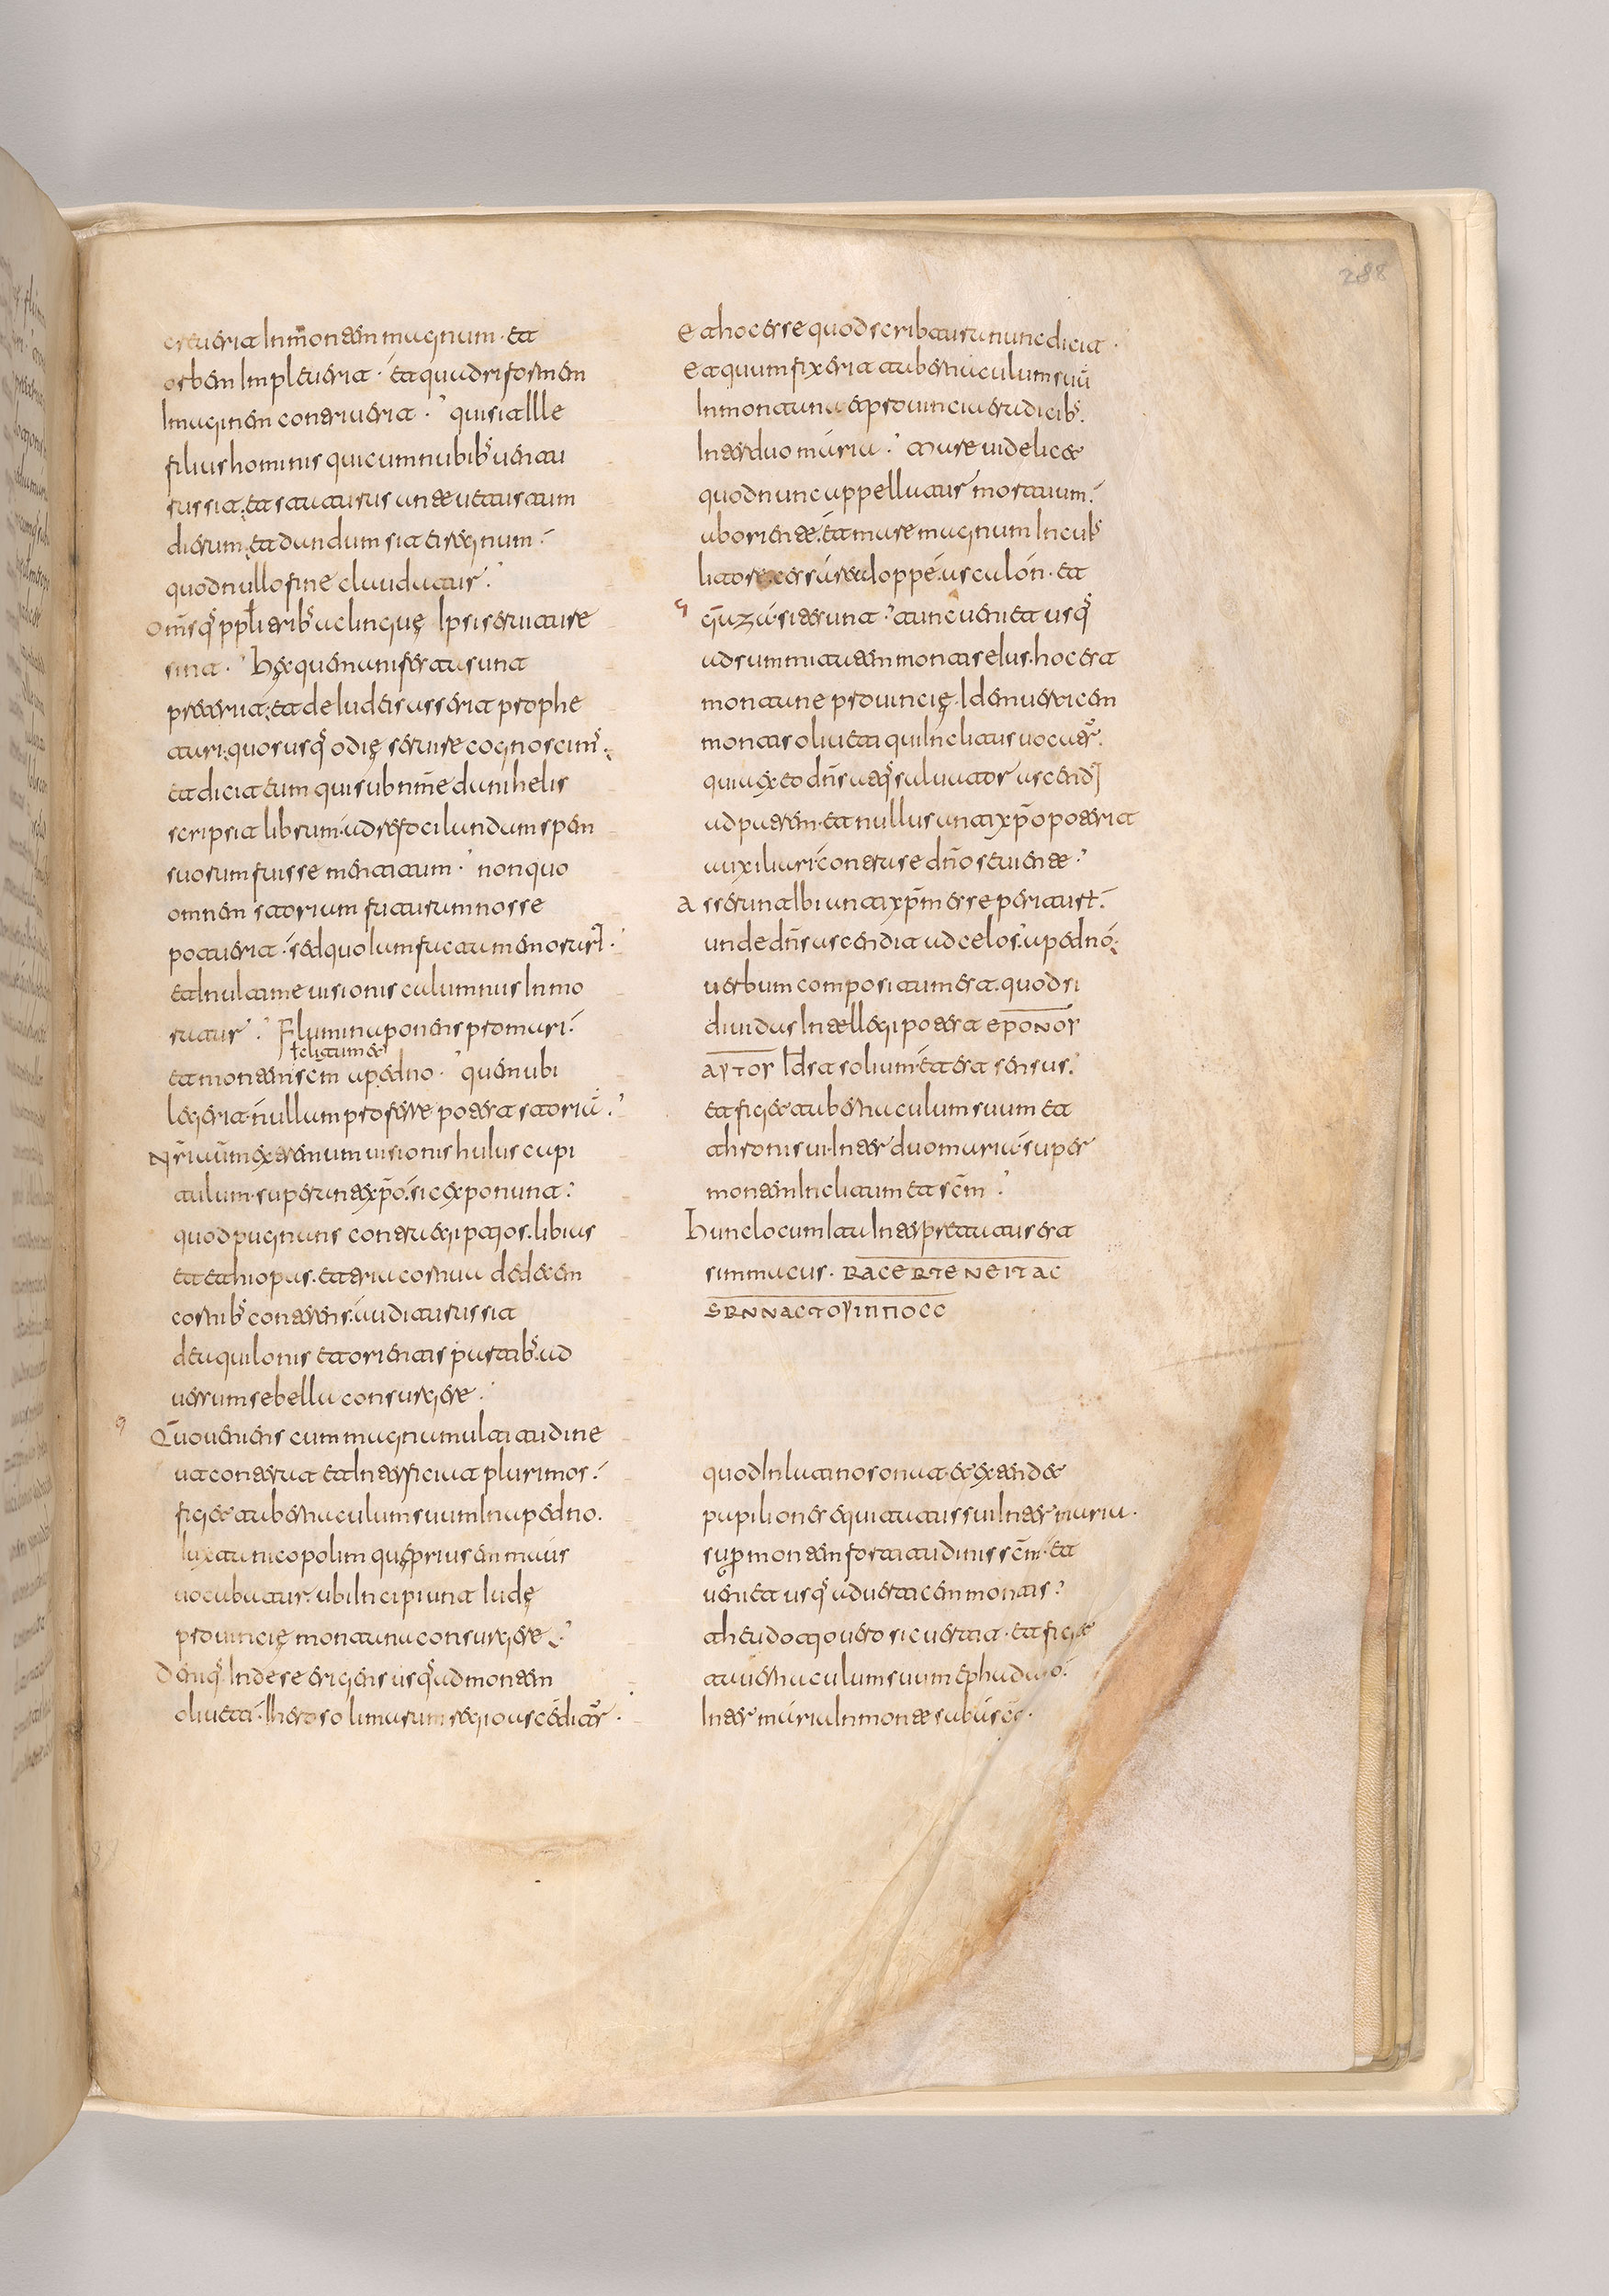 288
creuerit In montem magnum · et
orbem Impleuerit · et quadriformem
Imaginem contriuerit · quis it Ille
filius hominis qui cum nubibꝰ uentu
rus sit · et staturus ante uetustum
dierum · et dandum sit ei regnum ·
quod nullo fine claudatur ·
Om̅sqꝰ pp̅li tribꝰ ac linguę Ipsi seruiture
sint · hęc quę manifesta sunt
preterit · et de Iudeis asserit prophe
tari · quos usqꝰ odię seruire cognoscimꝰ ·
et dicit eum qui sub nm̅e danihelis
scripsit librum · ad refocilandum spem
suorum fuisse mentitum · non quo
omnem storium futurum nosse
potuerit · sed quo Iam facta memorar̅t ·
et In ultime uisionis calumnias Inmo
ratur · Flumina ponens pro mari ·
Iclitum &
et montem scm̅ apedno · quę nubi
legerit · nullum proferre potest storiā ·
Nr̅i aūm extremum uisionis huius capi
tulum · super antixp̅o · sic exponunt ·
quod pugnans contra egiptios · libias
et ethiopas · et tria cornua de decem
cornibꝰ conterens · auditurus sit
de aquilonis et orientis partibꝰ · ad
uersum se bella consurgere ·
Quo ueniens cum magna multitudine
ut conterat et Interficiat plurimos ·
figet tabernaculum suum In apedno ·
Iuxta nicopolim quę prius emmaus
uocabatur · ubi Incipiunt Iudę
prouincię montana consurgere ·
Denīqꝰ Inde se erigens usqꝰ ad montem
oliueti · Iherosolimarum regio ascēditūr ·
et hoc esse quod scribtura nunc dicit ·
et quum fixerit tabernaculum suū
In montana prouincie radicibꝰ ·
Inter duo maria · mare uidelicet
quod nunc appellatur mortuum ·
ab oriente · et mare magnum In cuiꝰ
litore cesarea Ioppe · ascalon · et
gaza · sita sunt · tunc ueniet usqꝰ
ad summitatem montis eius · hoc est
montane prouincię · Id est uerticem
montis oliueti qui Inclitus uocat̄ ·
quia ex eo dn̅s atqꝰ saluator ascend̄
ad patrem · et nullus antixp̅o poterit
auxiliari · contra se dn̅o seuiente ·
Asserunt Ibi antixp̅m esse peritur̅ ·
unde dn̅s ascendit ad celos · apedno ·
uerbum compositum est · quod si
diuidas Intellegi potest ΘΡΟΝΟΥ
ΑΥΤΟΥ Id est solium · et est sensus ·
et figet tabernaculum suum et
throni sui · Inter duo maria · super
montem Inclitum et scm̅ ·
hunc locum Ita Interpretatus est
simmacus ·
quod In latino sonat · et extendet
papiliones equitatus sui Inter maria ·
supr̅ montem fortitudinis scm̅ · et
ueniet usqꝰ ad uerticem montis ·
theudotio uero sic uertit · et figet
tauernaculum suum ephadano ·
Inter maria In monte